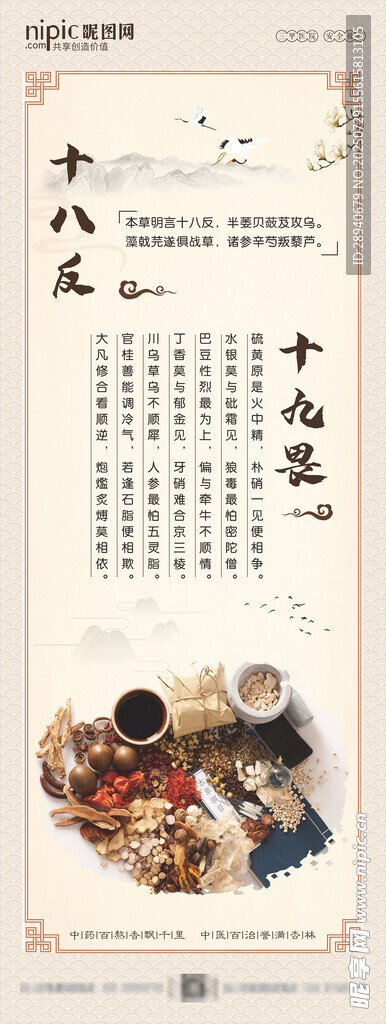 nipic 昵图网
.com 共享创造价值
三甲医院 安全
十八反
本草明言十八反，半蒌贝蔹芨攻乌。
藻戟芫遂俱战草，诸参辛芍叛藜芦。
十九畏
硫黄原是火中精，朴硝一见便相争。
水银莫与砒霜见，狼毒最怕密陀僧。
巴豆性烈最为上，偏与牵牛不顺情。
丁香莫与郁金见，牙硝难合京三棱。
川乌草乌不顺犀，人参最怕五灵脂。
官桂善能调冷气，若逢石脂便相欺。
大凡修合看顺逆，炮爁炙煿莫相依。
中药百熬香飘千里 中医百治誉满杏林
ID:28940679 NO:20250729155615813105
昵享网 www.nipic.cn